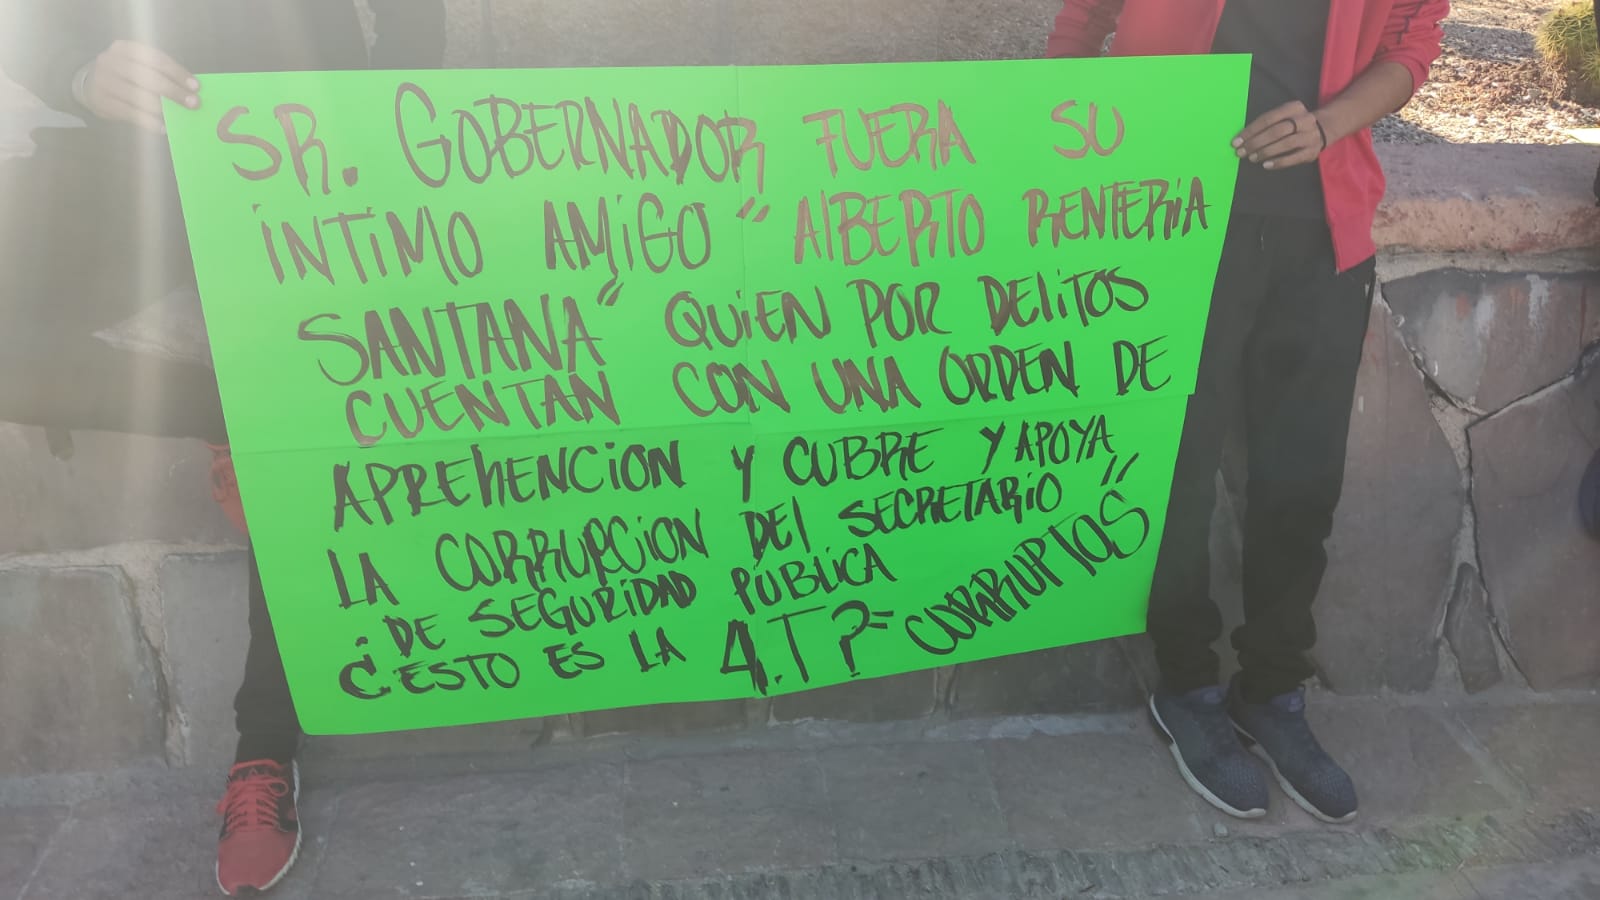 SR. GOBERNADOR FUERA SU
INTIMO AMIGO "ALBERTO RENTERIA
SANTANA" QUIEN POR DELITOS
CUENTAN CON UNA ORDEN DE
APREHENCION Y CUBRE Y APOYA
LA CORRUPCION DEL SECRETARIO
DE SEGURIDAD PÚBLICA
¿ESTO ES LA 4.T?= CORRUPTOS"